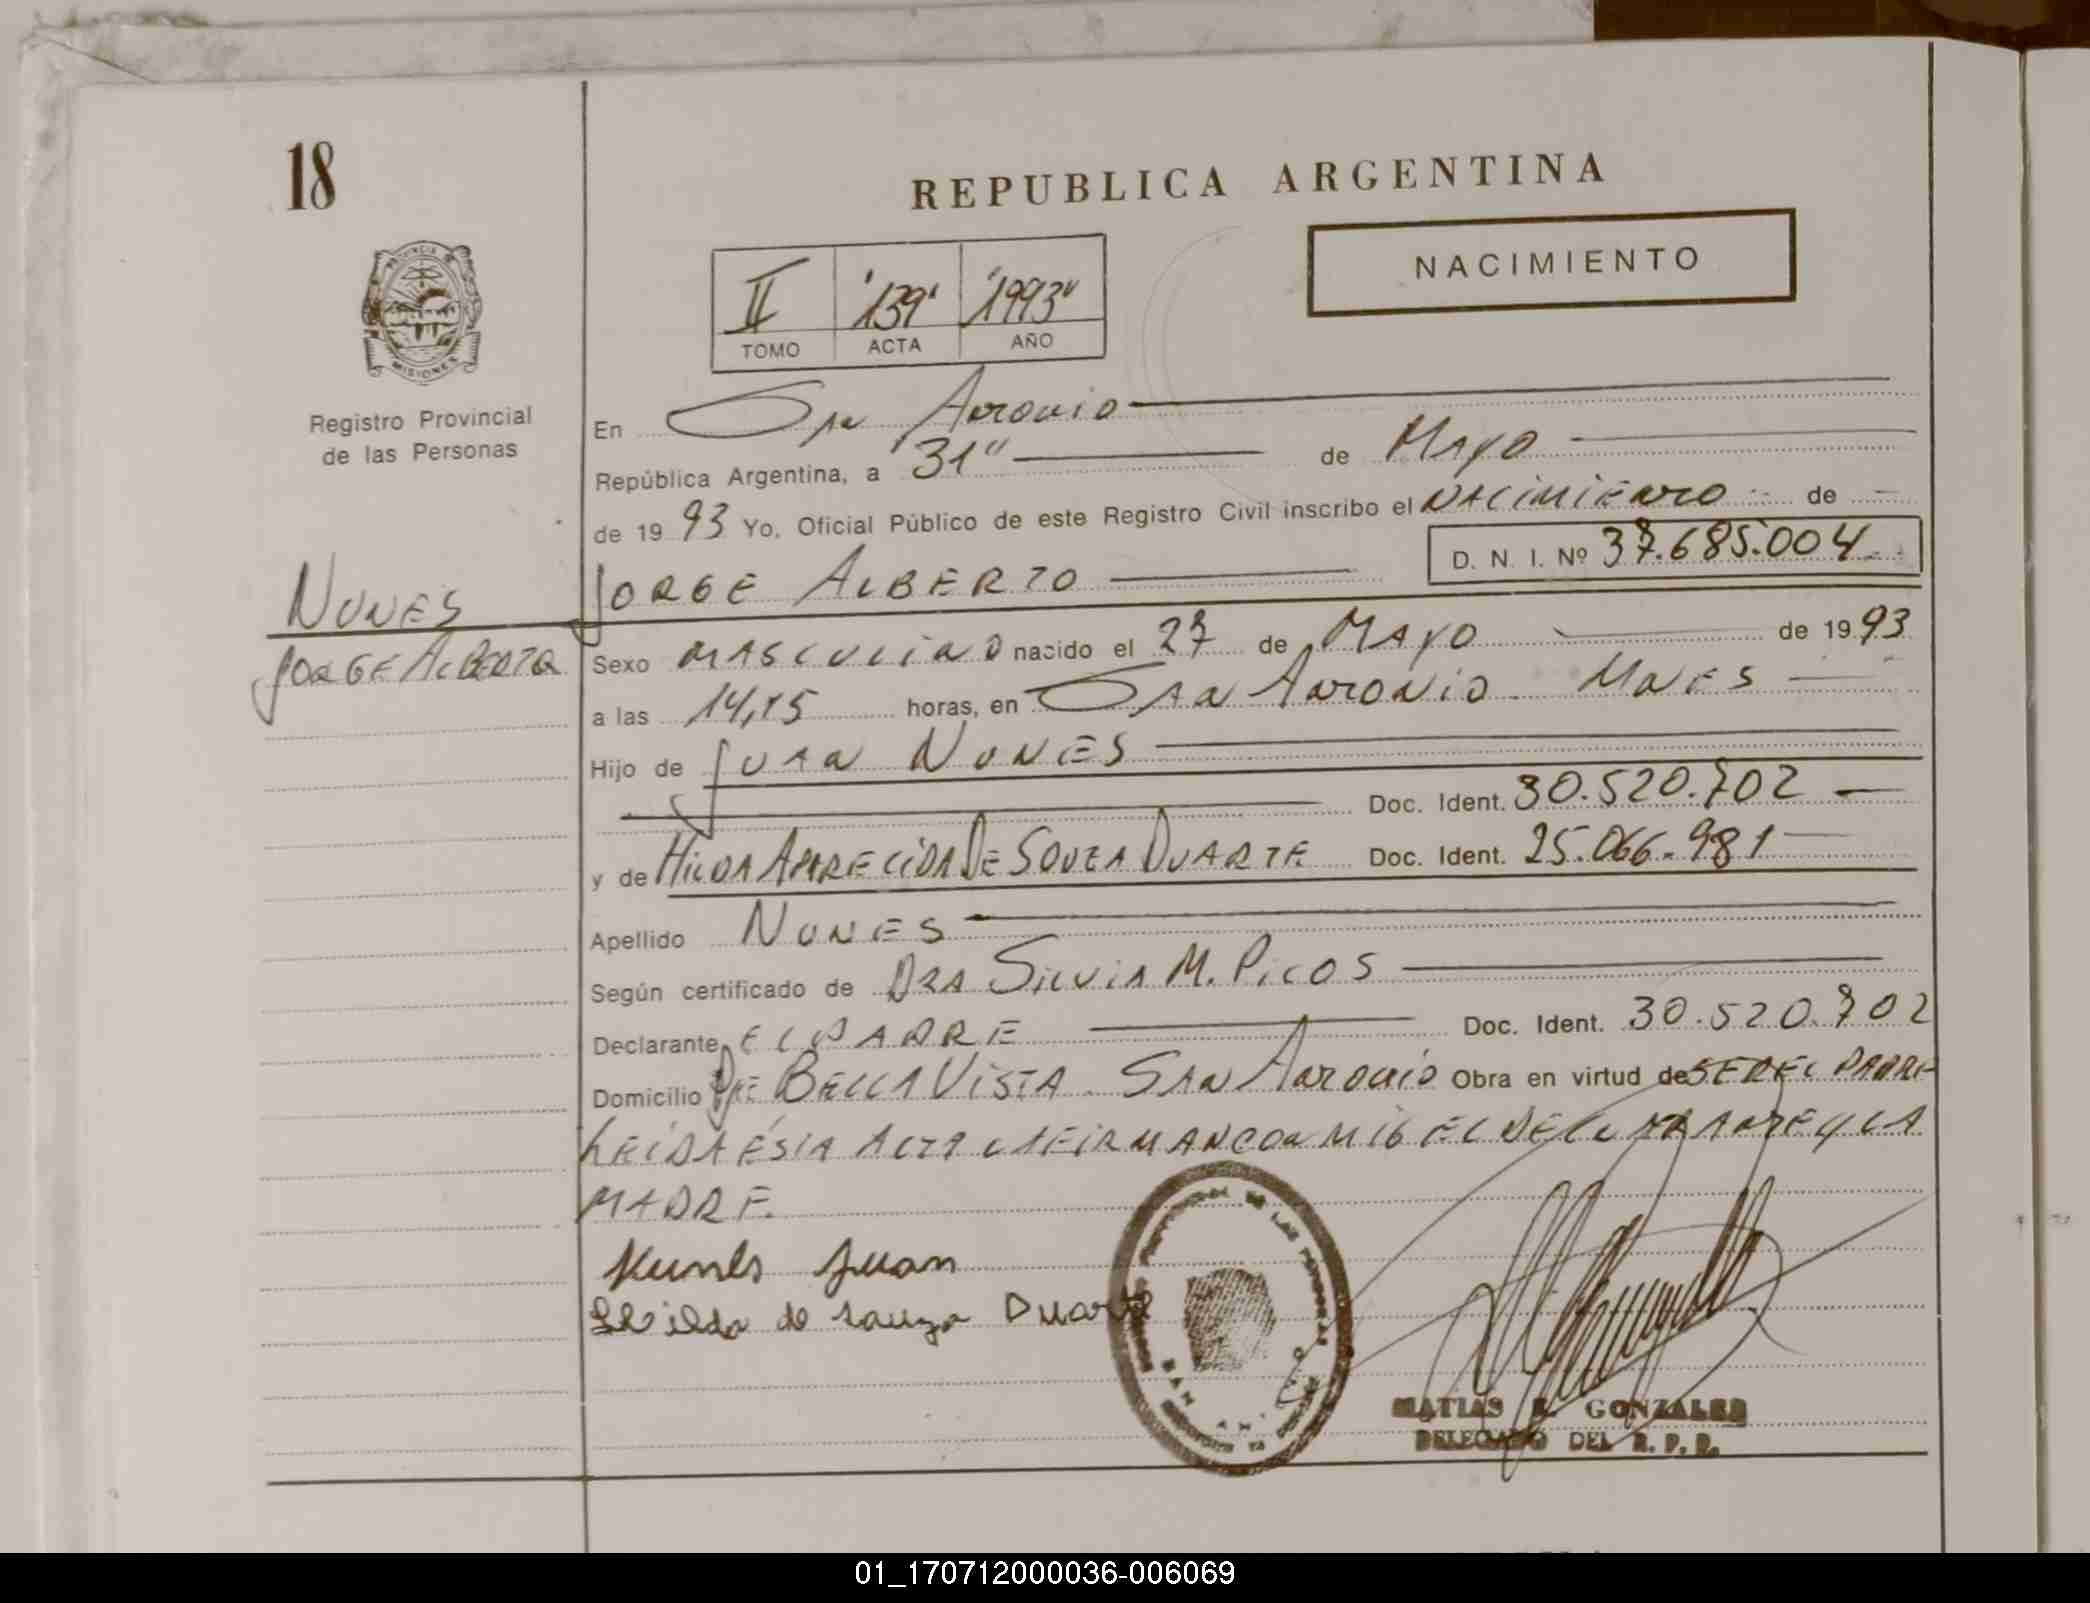 18
REPUBLICA ARGENTINA
NACIMIENTO
II "139" "1993"
TOMO ACTA AÑO
PROVINCIA DE
MISIONES
Registro Provincial
de las Personas
En San Antonio
República Argentina, a "31" de Mayo
de 1993 Yo, Oficial Público de este Registro Civil inscribo el NACIMIENTO de
D. N. I. Nº 37.685.004
JORGE ALBERTO
NUNES
JORGE ALBERTO
Sexo MASCULINO nacido el 27 de MAYO de 1993
a las 14,15 horas, en SAN ANTONIO MNES
Hijo de JUAN NUNES
Doc. Ident. 30.520.702
y de HILDA APARECIDA DE SOUZA DUARTE Doc. Ident. 25.066.981
Apellido NUNES
Según certificado de DRA SILVIA M. PICOS
Declarante EL PADRE Doc. Ident. 30.520.702
Domicilio BELLA VISTA SAN ANTONIO Obra en virtud de SER EL PADRE
LEIDA ESTA ACTA LA FIRMAN CONMIGO EL DECLARANTE Y LA
MADRE.
Nunes Juan
Hilda de Souza Duarte
DE LAS PERSONAS
MATIAS GONZALES
DELEGADO DEL R. P. P.
01_170712000036-006069